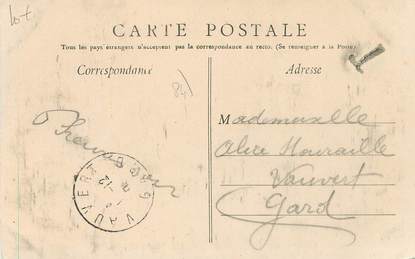 Lot
CARTE POSTALE
Tous les pays étrangers n'acceptent pas la correspondance au recto. (Se renseigner à la Poste)
Correspondance
Adresse
84)
Mademoiselle
Alice
Vauvert
Gard
VAUVERT